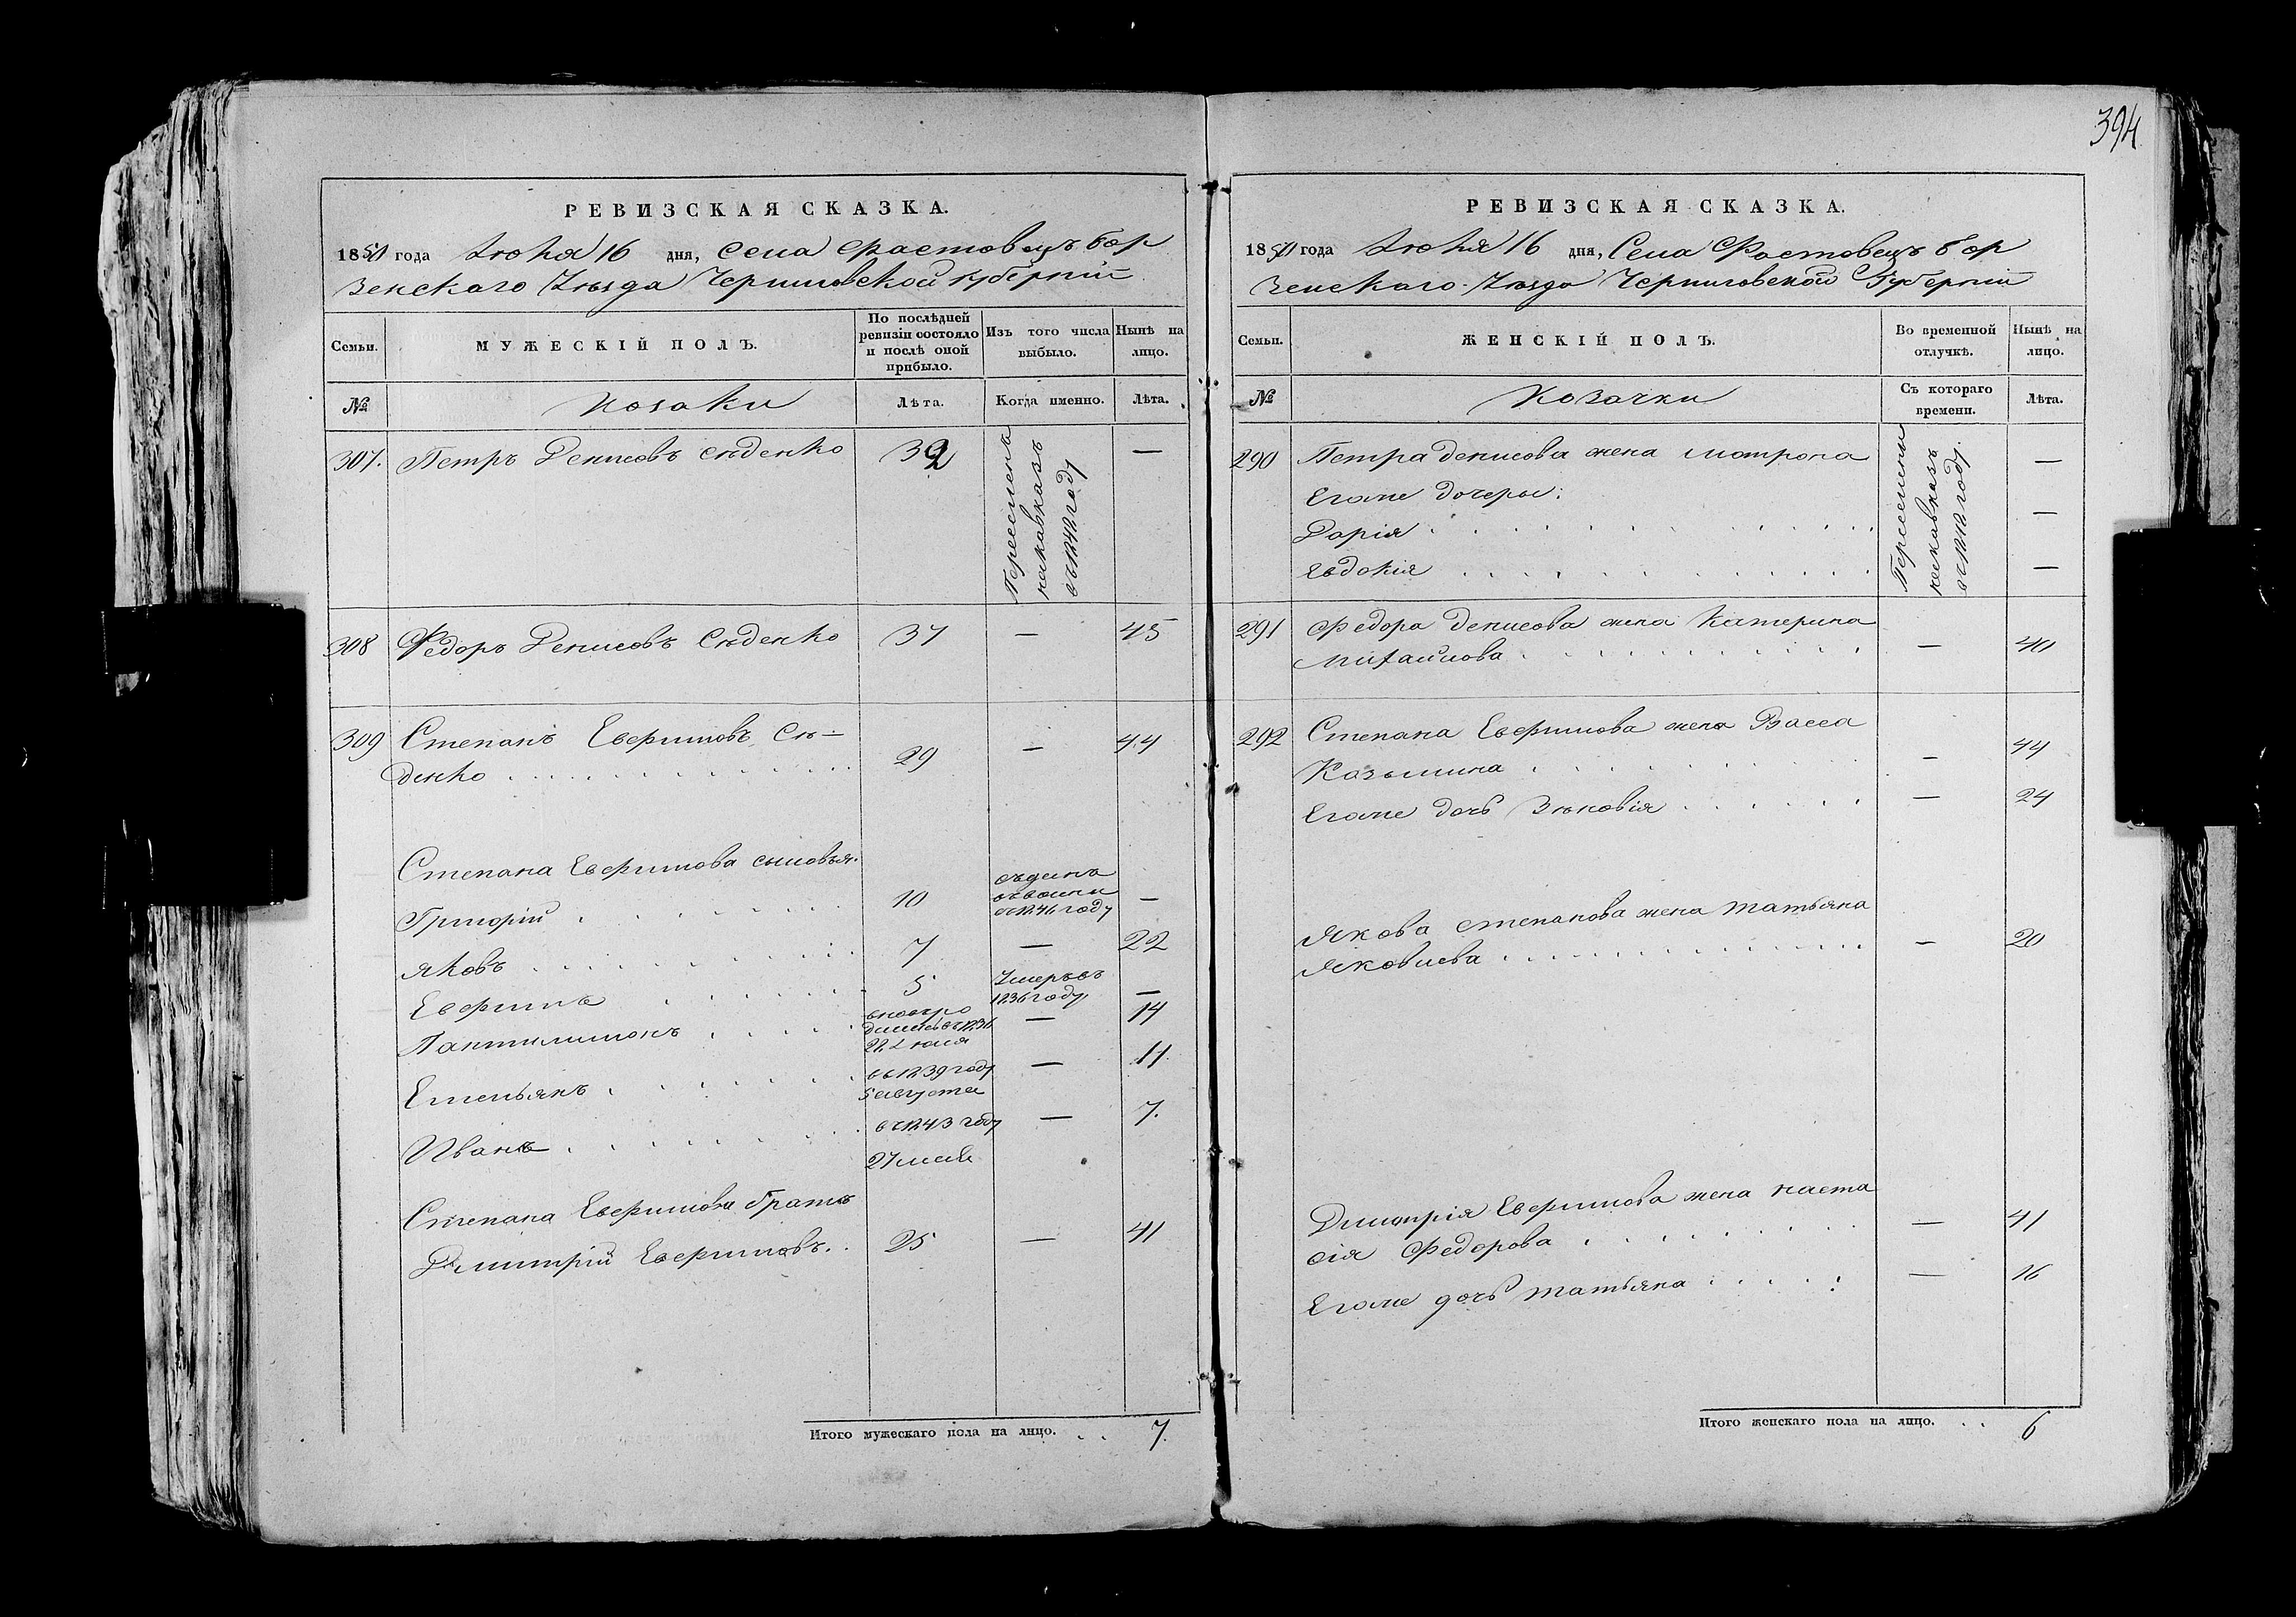 394
РЕВИЗСКАЯ СКАЗКА.
1850 года Іюня 16 дня, Села Фастовецъ Бор
зенскаго Уѣзда Черниговской Губерніи
Семьи. МУЖЕСКІЙ ПОЛЪ. По послѣдней ревизіи состояло и послѣ оной прибыло. Изъ того числа выбыло. Нынѣ на лицо.
№ Козаки Лѣта. Когда именно. Лѣта.
307. Петръ Денисовъ Сѣденко 32 Переселенъ на кавказъ въ 1842 году —
308 Федоръ Денисовъ Сѣденко 37 — 45
309 Степанъ Евфимовъ Сѣ-
денко 29 — 44
Степана Евфимова сыновья.
Григорій 10 въ 1846 году —
Яковъ 7 — 22
Евфимъ 5 Умеръ въ 1836 году —
Пантилимонъ 1836 22 Іюля — 14
Емельянъ въ 1839 году 5 августа — 11.
Иванъ въ 1843 году 27 мая — 7.
Степана Евфимова братъ
Димитрій Евфимовъ. 25 — 41
Итого мужескаго пола на лицо. . . 7.
РЕВИЗСКАЯ СКАЗКА.
1850 года Іюня 16 дня, Села Фастовецъ Бор
зенскаго Уѣзда Черниговской Губерніи
Семьи. ЖЕНСКІЙ ПОЛЪ. Во временной отлучкѣ. Нынѣ на лицо.
№ Козачки Съ котораго времени. Лѣта.
290 Петра Денисова жена Мотрона Переселены на кавказъ въ 1842 году. —
Егоже дочеры:
Дарія —
Явдокія —
291 Федора Денисова жена Катерина
Михайлова — 40
292 Степана Евфимова жена Васса
Казьмина — 44
Егоже дочь Зѣновія — 24
Якова Степанова жена Татьяна
Яковлева — 20
Димитрія Евфимова жена Наста
сія Федорова — 41
Егоже дочь Татьяна — 16
Итого женскаго пола на лицо. . . 6